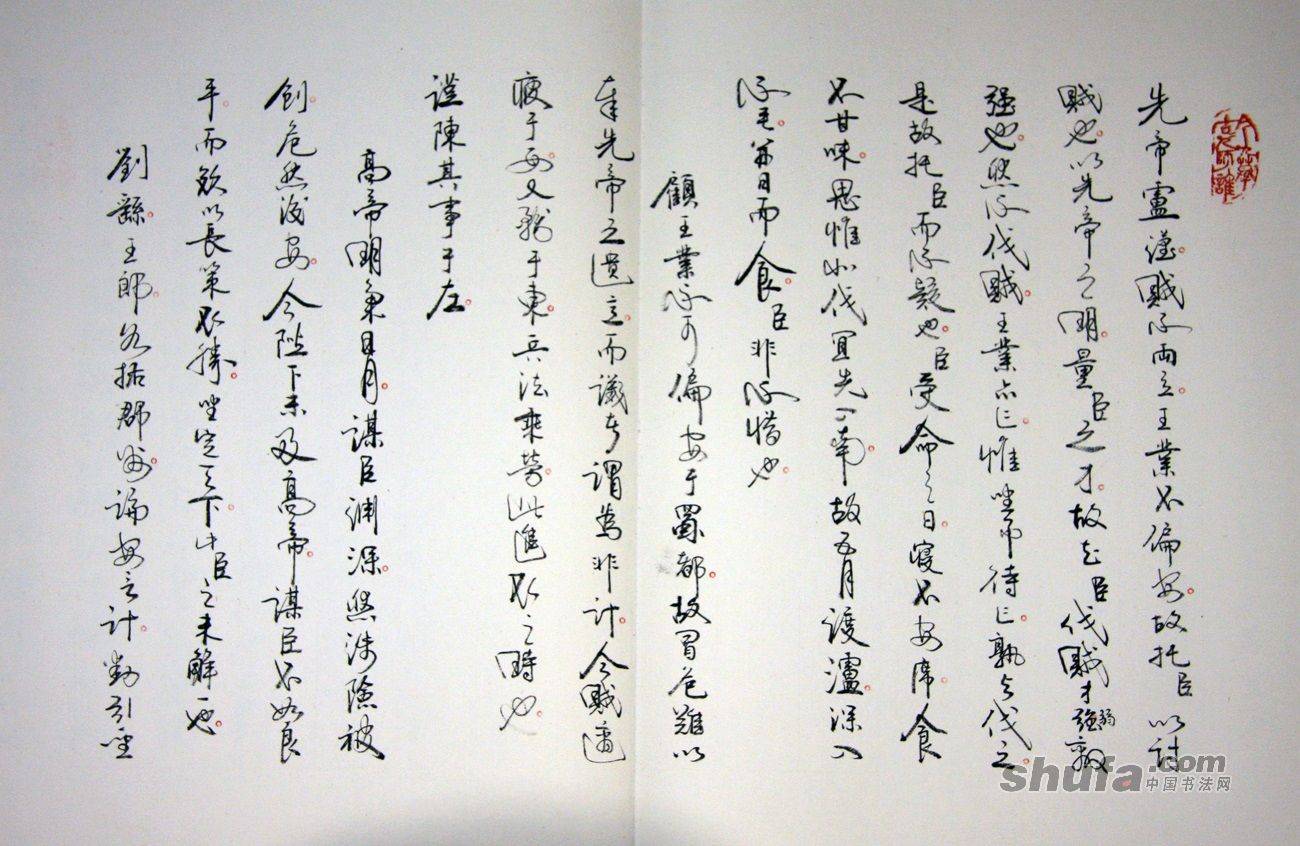 先帝慮漢賊不兩立王業不偏安故托臣以討
賊也以先帝之明量臣之才故知臣伐賊才強弱敵
強也然不伐賊王業亦亡惟坐而待亡孰與伐之
是故托臣而不疑也臣受命之日寢不安席食
不甘味思惟北伐宜先入南故五月渡瀘深入
不毛并日而食臣非不惜也
顧王業不可偏安于蜀都故冒危難以
奉先帝之遺意而議者謂為非計今賊適
疲于西又務于東兵法乘勞此進趨之時也
謹陳其事于左
高帝明並日月謀臣淵深然涉險被
創危然後安今陛下未及高帝謀臣不如良
平而欲以長策取勝坐定天下此臣之未解一也
劉繇王郎各据郡州論安言計動引聖
shufa.com
中国书法网